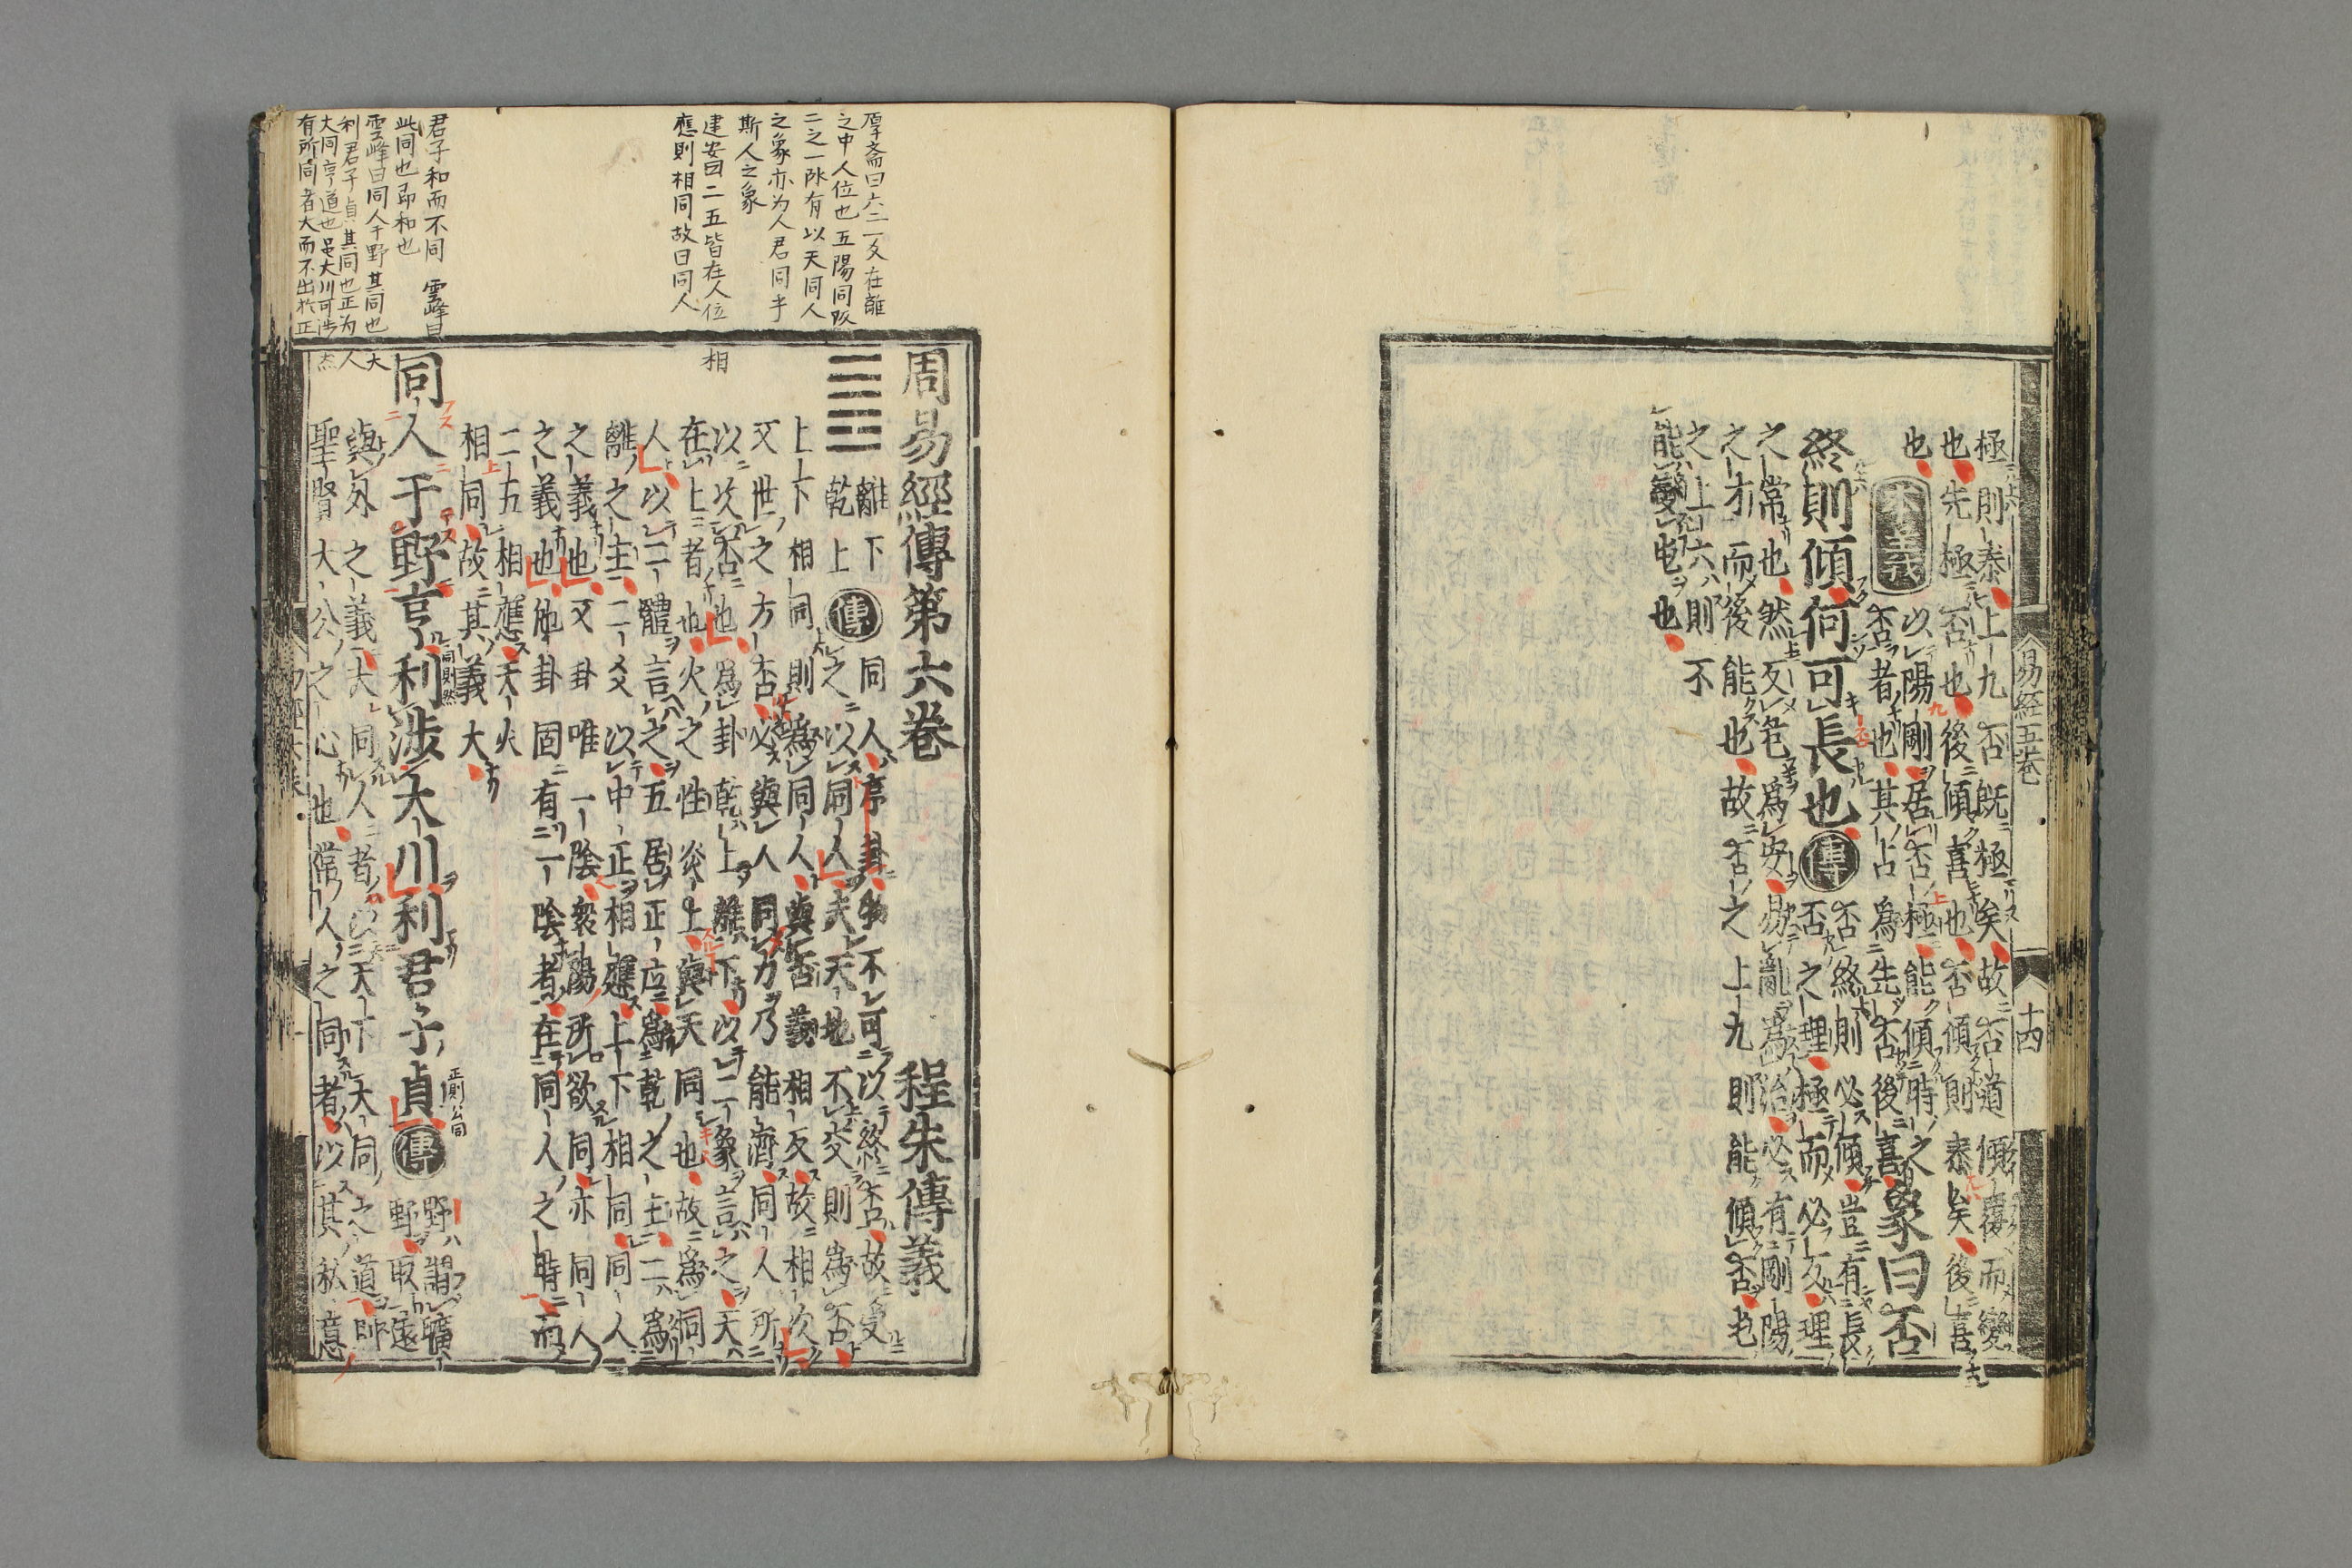 極則泰上九否既極矣故否道傾覆而變
也先極否也後傾喜也否傾則泰矣後喜
也本義以陽剛居否極能傾時之
否者也其占爲先否後喜象曰否
終則傾何可長也傳否終則必傾豈有長
否之理極而必反理
之常也然反危爲安易亂爲治必有剛陽
之才而後能也故否之上九則能傾否屯
之上六則不
能變屯也
易經五巻
十四
周易經傳第六巻 程朱傳義
離下
乾上
傳同人序卦物不可以終否故受
之以同人夫天地不交則爲否
上下相同則爲同人與否義相反故相次
又世之方否必與人同力乃能濟同人所
以次否也爲卦乾上離下以二象言之天
在上者也火之性炎上與天同也故爲同
人以二體言之五居正位爲乾之主二爲
離之主二爻以中正相應上下相同同人
之義也又卦唯一陰衆陽所欲同亦同人
之義也他卦固有一陰者在同人之時而
二五相應天火
相同故其義大
同人于野亨利涉大川利君子貞傳野謂曠
野取遠
與外之義夫同人者以天下大同之道則
聖賢大公之心也常人之同者以其私意
厚斎曰六二一爻在離
之中人位也五陽同欲
二之一陰有以天同人
之象亦为人君同乎
斯人之象
建安曰二五皆在人位
應則相同故曰同人
相
君子和而不同 雲峰曰
此同也即和也
雲峰曰同人于野其同也大
利君子貞其同也正为人
大同亨道也虽大川可涉
有所同者大而不出於正
同則然
正則公同